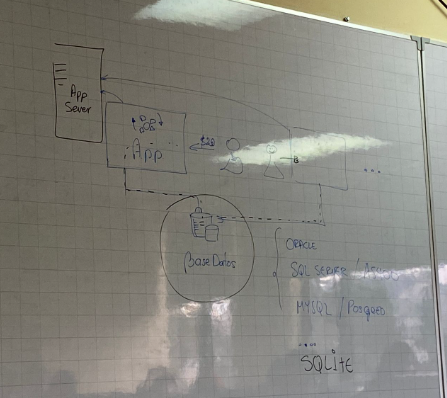 App
Sever
App ...
...
Base Datos
ORACLE
SQL SERVER /
MYSQL /
...
SQLitE